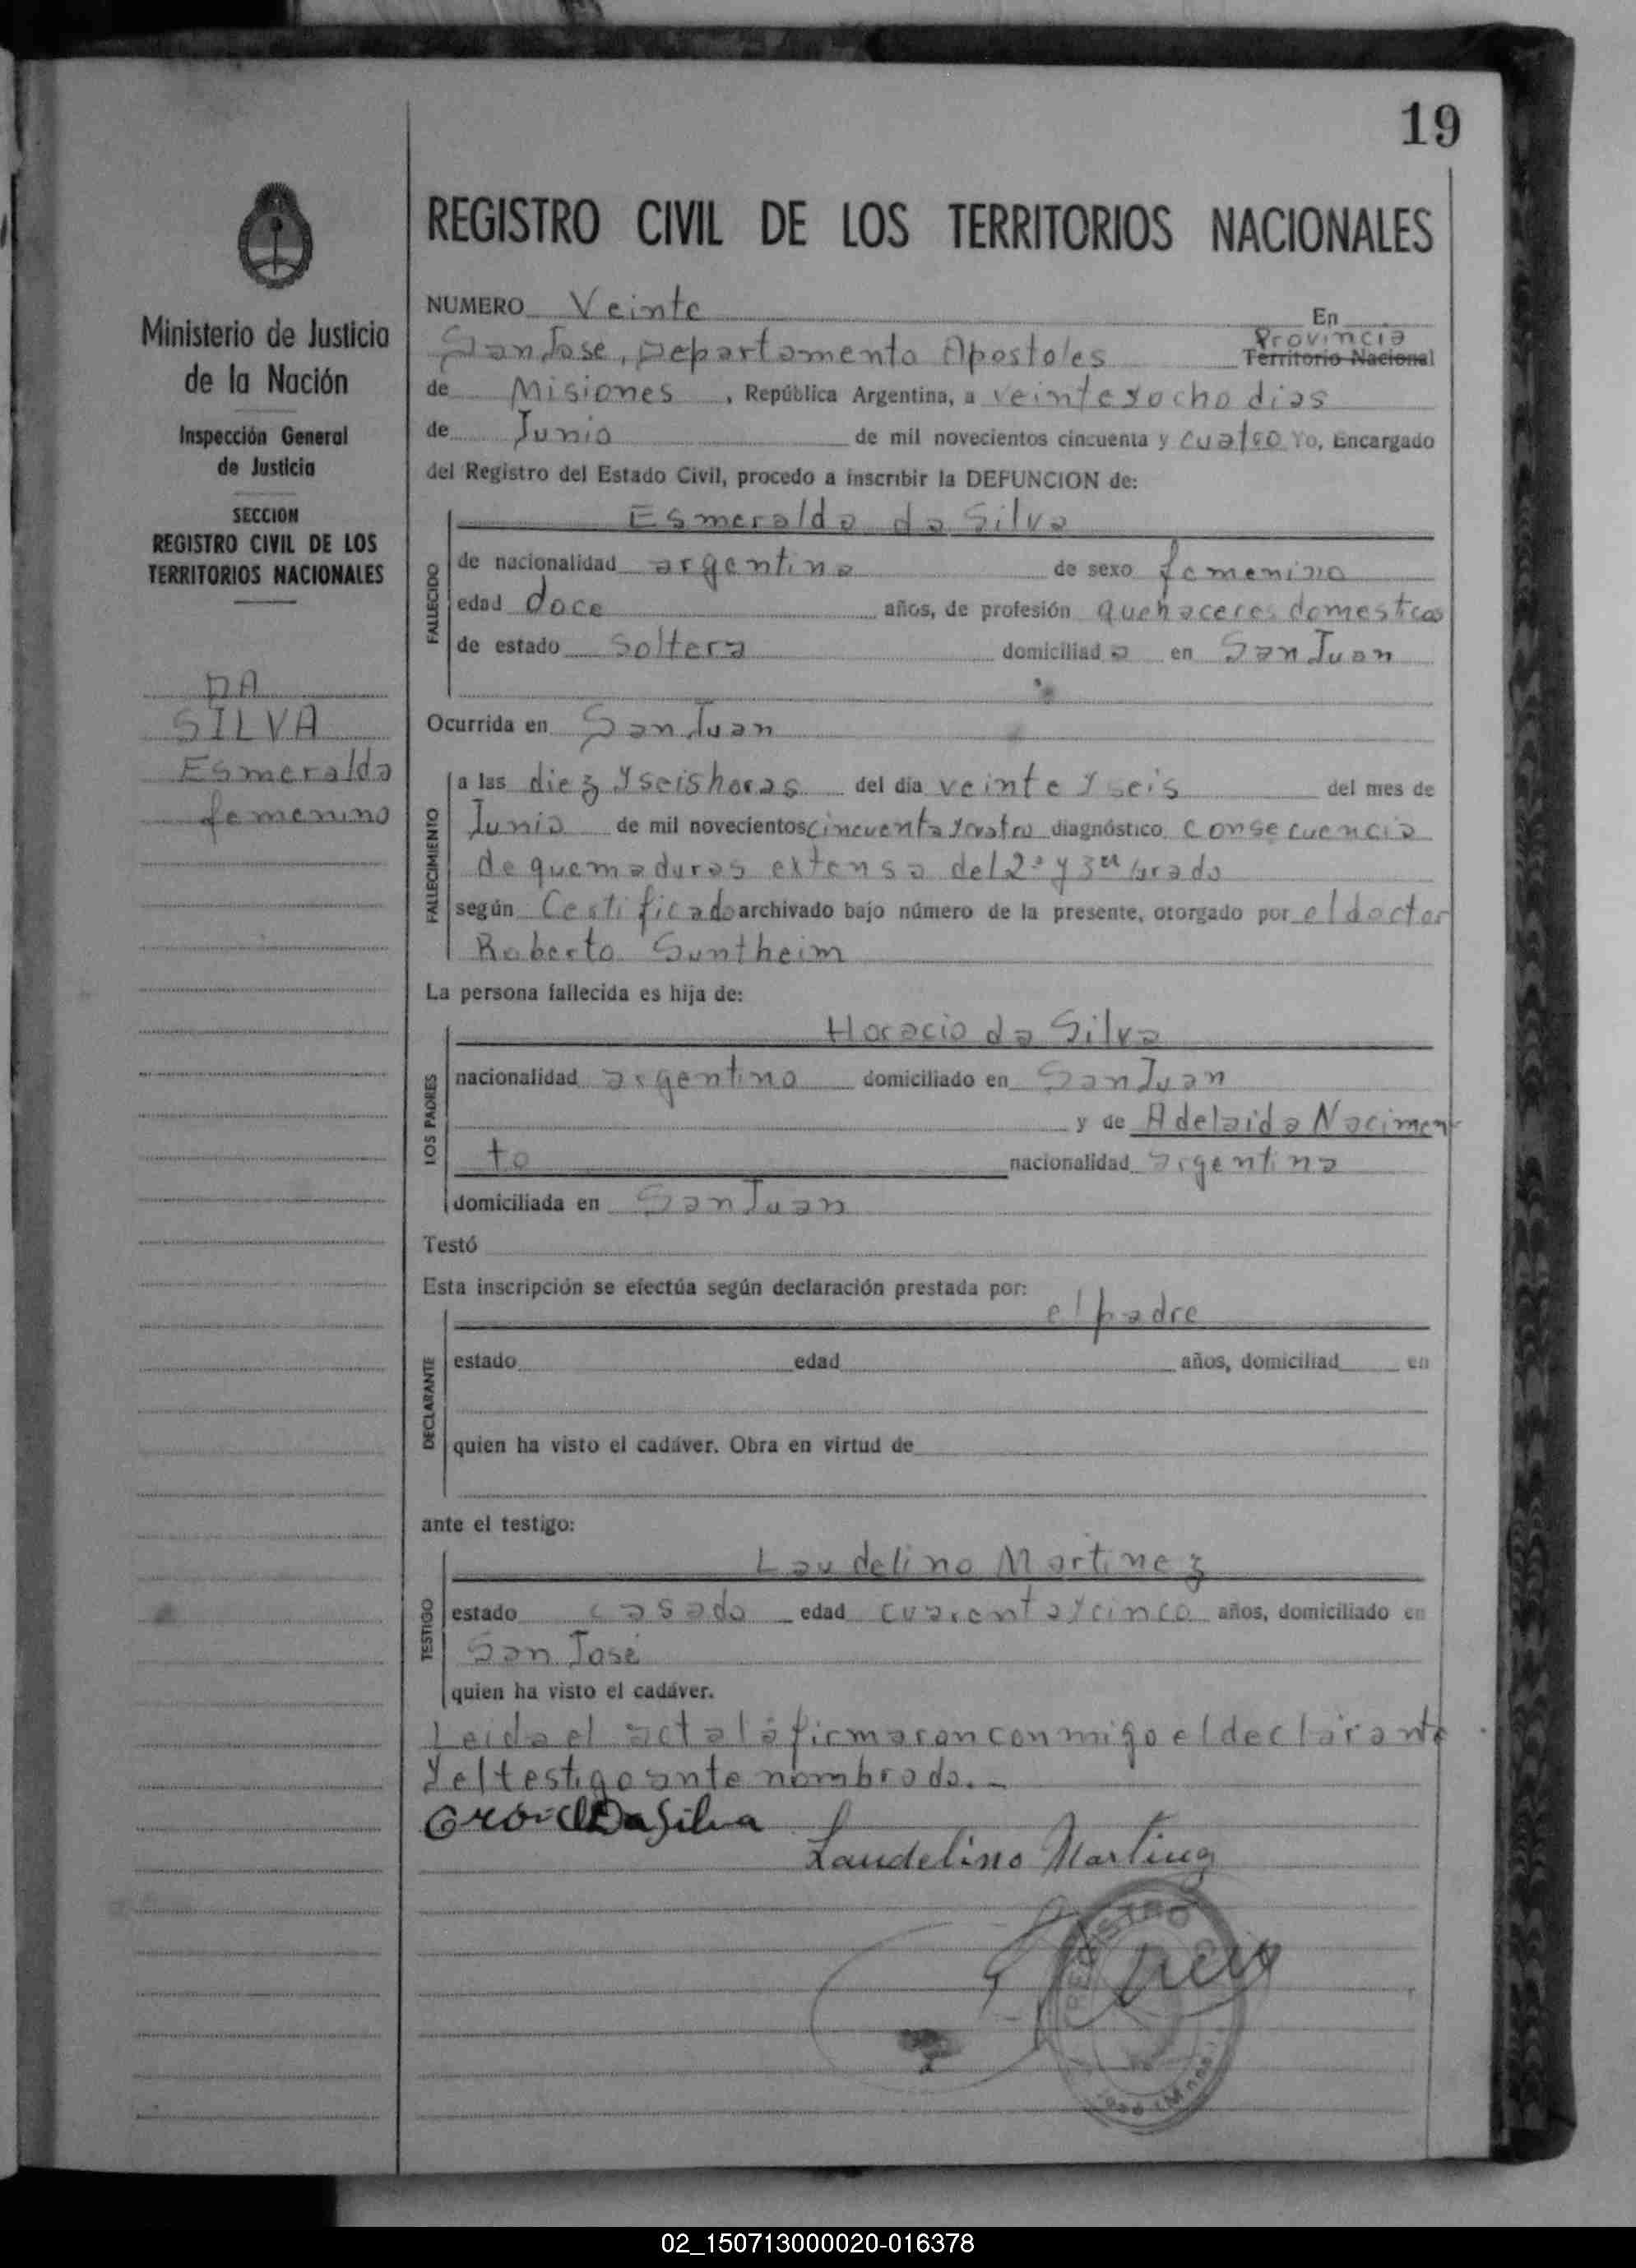 19
REGISTRO CIVIL DE LOS TERRITORIOS NACIONALES
Ministerio de Justicia
de la Nación
Inspección General
de Justicia
SECCION
REGISTRO CIVIL DE LOS
TERRITORIOS NACIONALES
DA
SILVA
Esmeralda
femenino
NUMERO Veinte En
San Jose, Departamento Apostoles Provincia Territorio Nacional
de Misiones, República Argentina, a veinte y ocho dias
de Junio de mil novecientos cincuenta y cuatro Yo, Encargado
del Registro del Estado Civil, procedo a inscribir la DEFUNCION de:
Esmeralda da Silva
FALLECIDO
de nacionalidad argentina de sexo femenino
edad doce años, de profesión quehaceres domesticos
de estado soltera domiciliad a en San Juan
Ocurrida en San Juan
FALLECIMIENTO
a las diez y seis horas del día veinte y seis del mes de
Junio de mil novecientos cincuenta y cuatro diagnóstico consecuencia
de quemaduras extensa del 2º y 3er grado
según Certificado archivado bajo número de la presente, otorgado por el doctor
Roberto Suntheim
La persona fallecida es hija de:
Horacio da Silva
LOS PADRES
nacionalidad argentino domiciliado en San Juan
y de Adelaida Nacimen
to nacionalidad argentina
domiciliada en San Juan
Testó
Esta inscripción se efectúa según declaración prestada por:
el padre
DECLARANTE
estado edad años, domiciliad en
quien ha visto el cadáver. Obra en virtud de
ante el testigo:
Laudelino Martinez
TESTIGO
estado casado edad cuarenta y cinco años, domiciliado en
San José
quien ha visto el cadáver.
Leida el acta la firmaron conmigo el declarante
y el testigo ante nombrado.-
Da Silva
Laudelino Martinez
REGISTRO
02_150713000020-016378